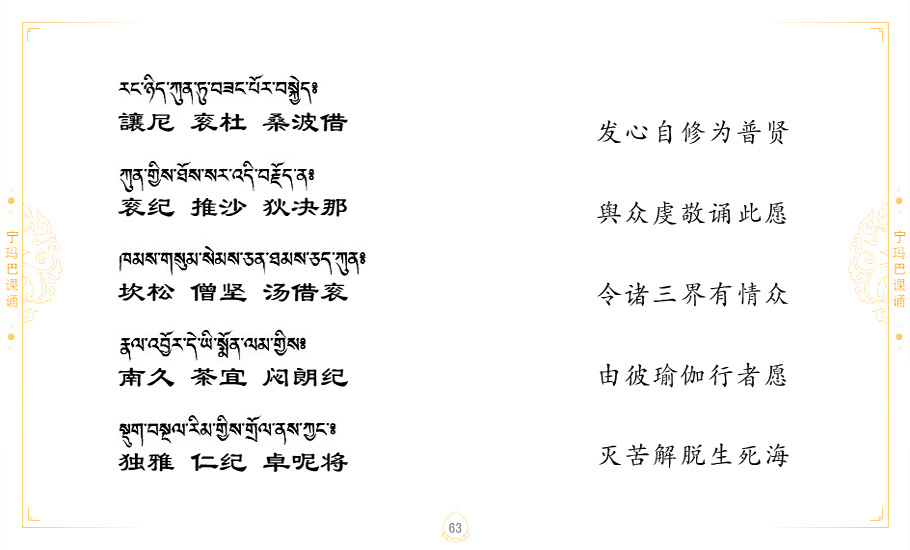 རང་ཉིད་ཀུན་ཏུ་བཟང་པོར་བསྐྱེད༔
讓尼 衮杜 桑波借
发心自修为普贤
ཀུན་གྱིས་ཐོས་སར་འདི་བརྗོད་ན༔
衮纪 推沙 狄决那
舆众虔敬诵此愿
ཁམས་གསུམ་སེམས་ཅན་ཐམས་ཅད་ཀུན༔
坎松 僧坚 汤借衮
令诸三界有情众
རྣལ་འབྱོར་དེ་ཡི་སྨོན་ལམ་གྱིས༔
南久 茶宜 闷朗纪
由彼瑜伽行者愿
སྡུག་བསྔལ་རིམ་གྱིས་གྲོལ་ནས་ཀྱང་༔
独雅 仁纪 卓呢将
灭苦解脱生死海
宁玛巴课诵
宁玛巴课诵
63